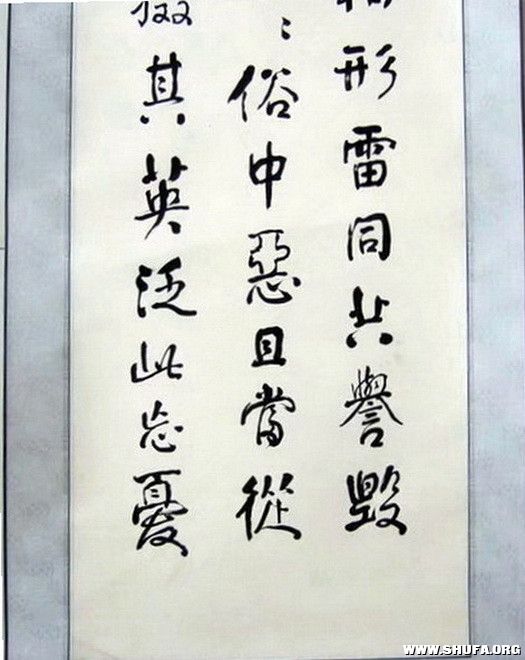 形雷同共譽毀
〻俗中惡且當從
其英泛此忘憂
WWW.SHUFA.ORG